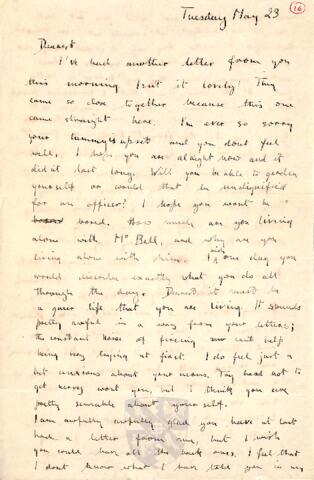 Tuesday May 23
16
Dearest
I've had another letter from you
this morning. Isn't it lovely! They
came so close together because this one
came straight here. I'm ever so sorry
your tummy is upset and you don't feel
well, I hope you are alright now and it
didn't last long. Will you be able to garden
yourself or would that be undignified
for an officer! I hope you won't be
bored. How much are you living
alone with Mr Bell, and why are you
living alone with him. I wish one day you
would describe exactly what you do all
through the day. Dearest it must be
a queer life that you are living. It sounds
pretty awful in a way from your letters;
the constant noise of firing must
being very trying at first. I do feel just a
bit anxious about your nerves. Try hard not to
get nervy won't you, but I think you are
pretty sensible about yourself.
I am awfully awfully glad you have at last
had a letter from me, but I wish
you could have all the back ones. I feel that
I don't know what I have told you in my